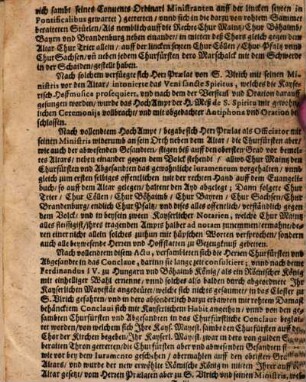 sich sambt seines Convents Ordinari Ministranten auff der lincken seyten in
Pontificalibus gewartet) getretten / unnd sich in die darzu von rothem Sammet
beraitteten Stüelen / Als nemblich auff die Rechte Chur Maintz / Chur Böhaimb/
Bayrn und Brandenburg neben einander / in mitten deß Chors gleich gegen dem
Altar Chur Trier allein / auff der lincken seyten Chur Cölln / Chur-Pfaltz und
Chur Sachsen / vñ neben jedem Churfürsten dero Marschalck mit dem Schwerdt
in der Schaiden / gestellt haben.
Nach solchem verfüegte sich Herr Prælat von S. Ulrich mit seinen Mini-
stris vor den Altar / intonierte das Veni sancte Spiritus, welches die Kayser-
lich Hoffmusica prosequiert, und nach dem der Versicul und Oration darauff
gesungen worden / wurde das Hoch Ampt der H. Meß de S. Spiritu mit gewohn-
lichen Ceremonijs vollbracht / und mit abgebetter Antiphona und Oration be-
schlossen.
Nach vollendetem Hoch Ampt / begabe sich Herr Prælat als Officiator mit
seinen Ministris widerumb an sein Orth neben dem Altar / die Churfürsten aber
wie auch der abwesenden Gesandten / stigen biß auff den obersten Grad vor bemel-
tes Altars / neben einander gegen dem Volck stehend / allwo Chur Maintz den
Churfürsten und Abgesandten das gewohnliche Juramentum vorgehalten / und
gleich zum ersten selbsten offentlichen mit der rechten Hand auff dem Evangelien-
buch / so auff dem Altar gelegen / haltent den Ayd abgelegt; Dann folgete Chur
Trier / Chur Cölln / Chur Böhaimb / Chur Bayrn / Chur Sachsen / Chur
Brandenburg / endlich Chur Pfaltz / und diß alles offentlich / verständlich gegen
dem Volck / und in beysein zweyer Kayserlicher Notarien, welche Chur Maintz
alles fleissigst / ihres tragenden Ampts halber ad notam zunemmen / ermahnt / de-
nen einer nicht allein solches gut und mit höchsten Worten versprochen / sondern
auch alle beywesende Herren und Hoffstatten zu Bezeugknuß gebetten.
Nach vollendetem disem Actu, versambleten sich die Herren Churfürsten und
Abgesandten in das Conclave, darinn sie lange zeit confultiert / und nach dem
Ferdinandus IV. zu Hungarn und Böhaimb König / als ein Römischer König
mit einhelliger Wahl ernennt / und solches also balden durch abgeordnete Ihr
Kayserlichen Mayestät angedeutet / welche sich eben zur selben zeit in dem Closter zu
S. Ulrich gehalten / und in dero absonderlich darzu erbawten mit rothem Damast
behänckten Conclavi sich mit Kayserlichem Habit angethan / und von den ge-
sambten Churfürsten und Abgesandten in das Churfürstliche Conclave beglai-
tet worden / von welchem sich Ihre Kays. Mayest. sambt den Churfürsten auff den
Chor der Kirchen begeben: Ihr Kayserl. Mayest. zwar in dero von gulden
beraiten Thron getretten; die Churfürsten aber und absonderliche Gesandten
wie vor bey dem Juramento geschehen / abermahlen auff den obristen Grad des
Altars / und wurde der new erwöhlte Römische König in mitten Ihrer auff den
Altar gesetzt / vom Herrn Prælaten aber zu S. Ulrich und seinen Ministris, wel-